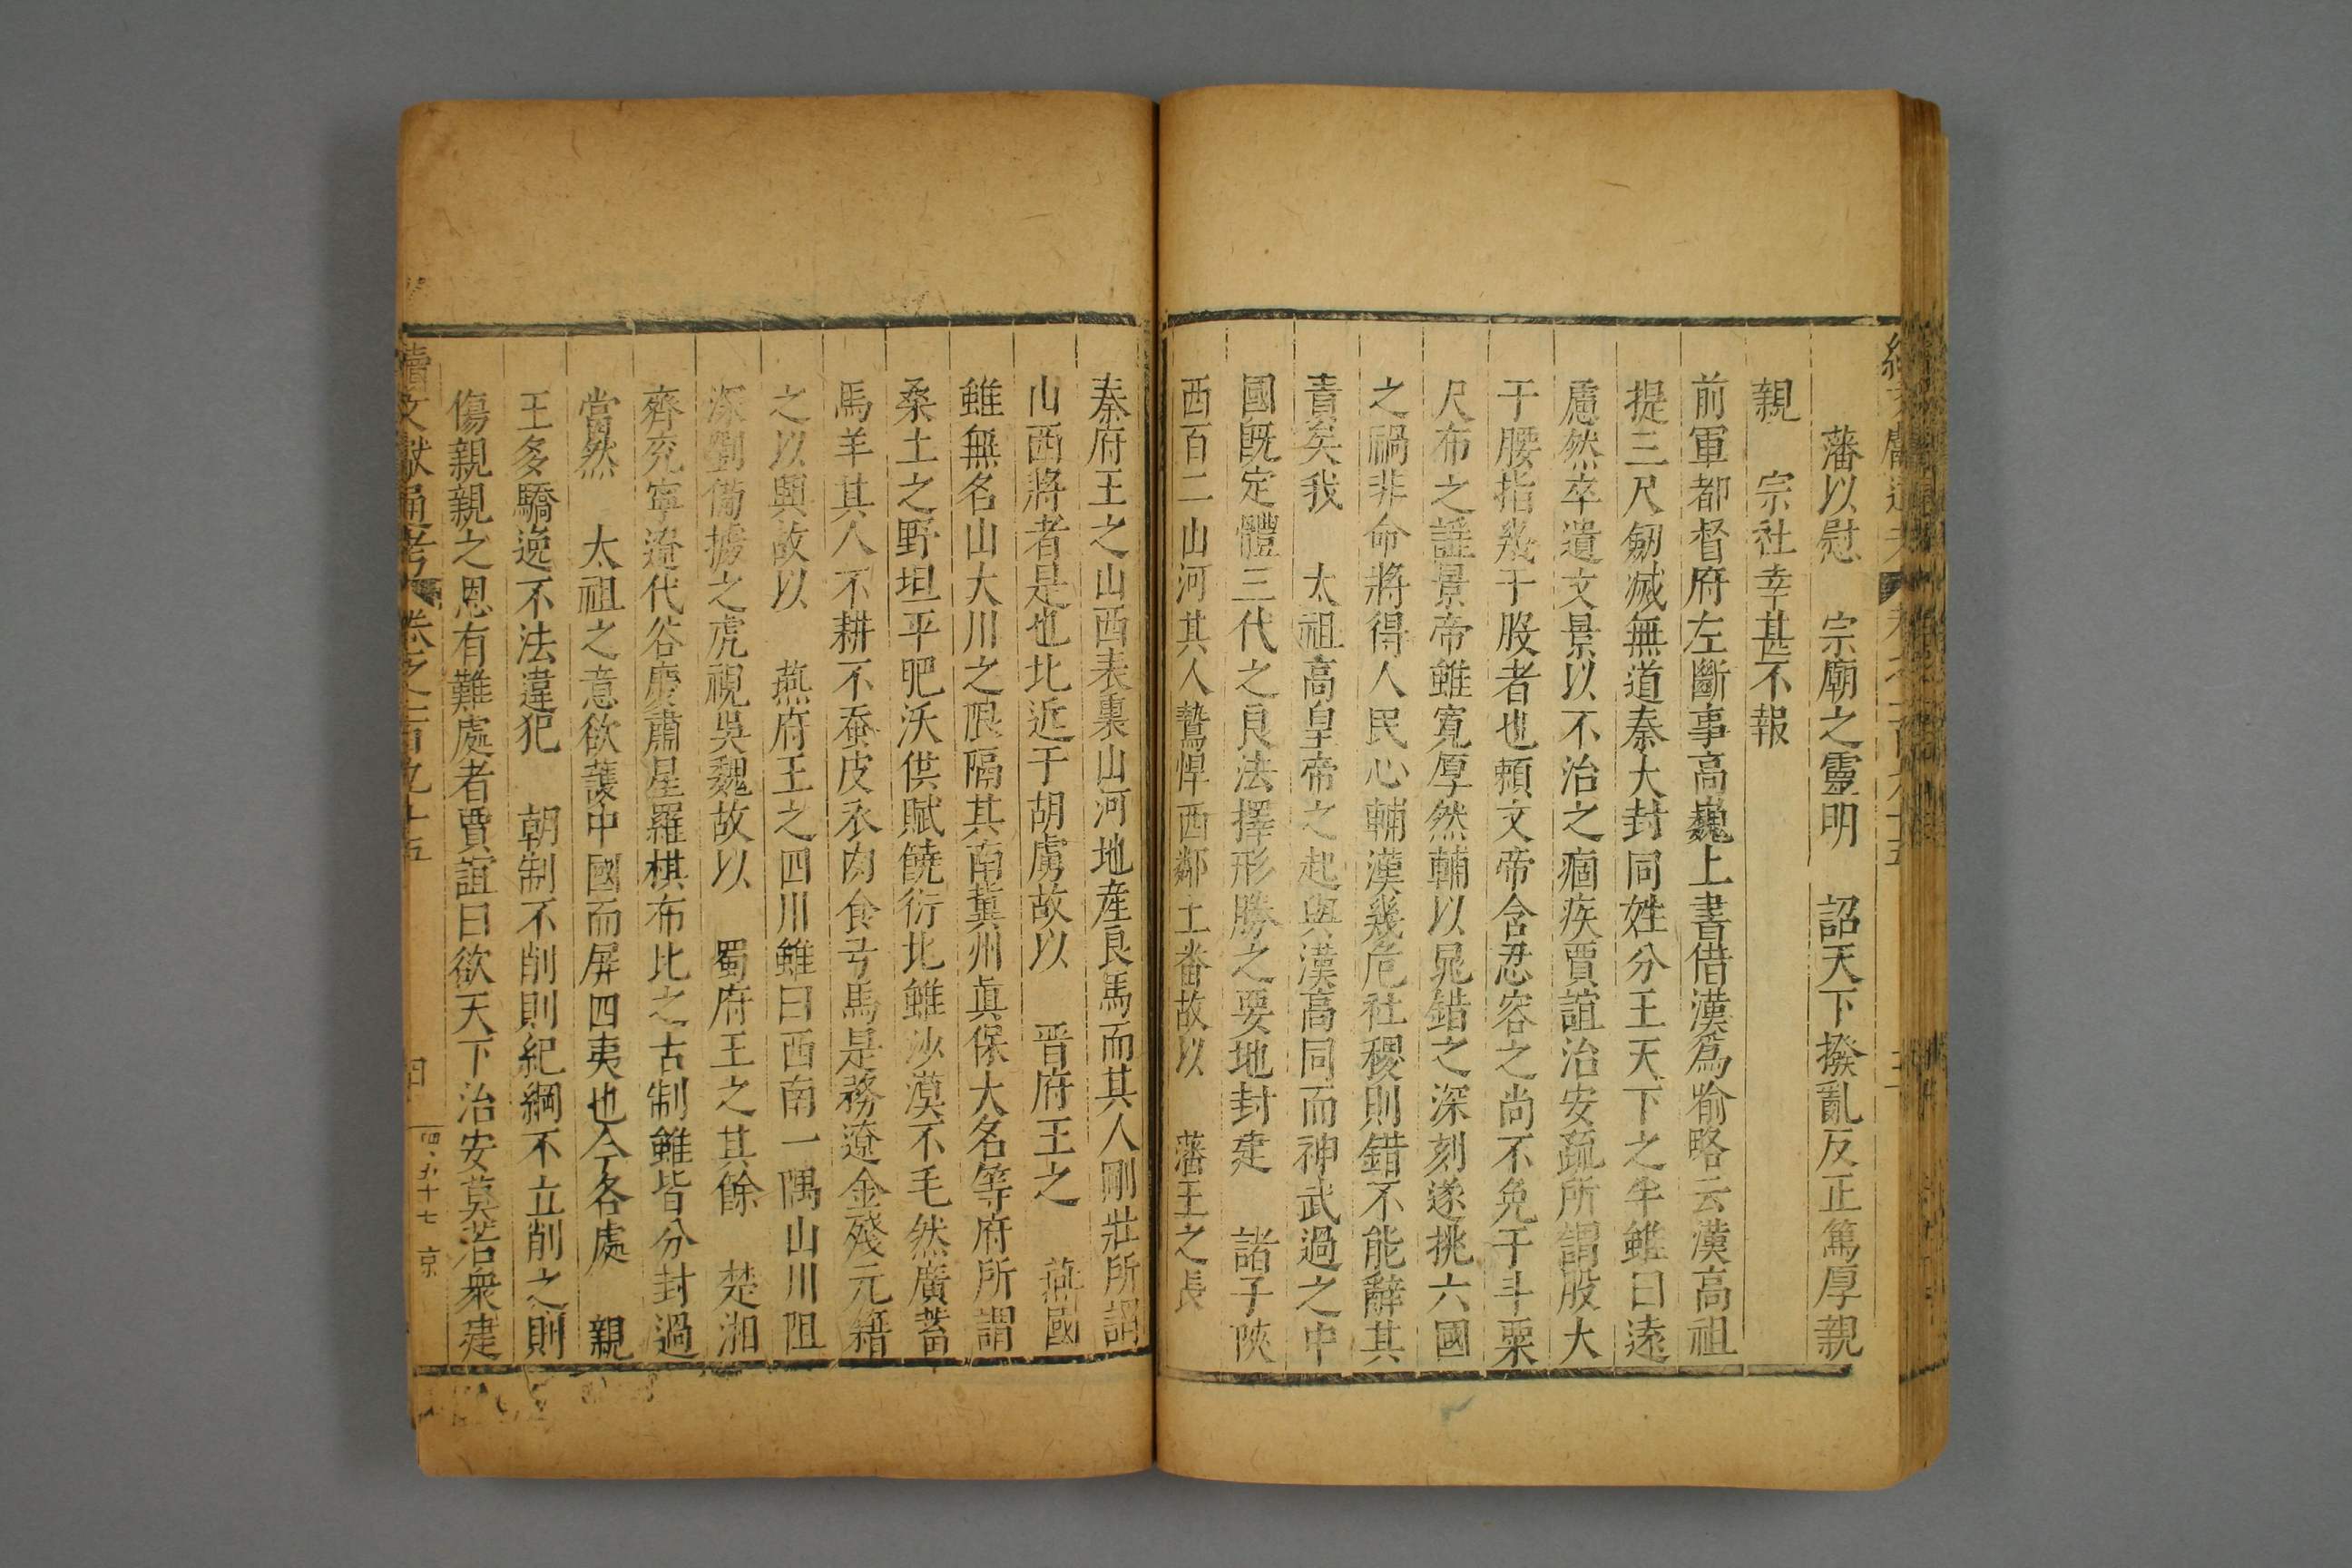 藩以慰　宗廟之靈明　詔天下撥亂反正篤厚親
親　宗社幸甚不報
前軍都督府左斷事高巍上書借漢爲喻略云漢高祖
提三尺劔滅無道秦大封同姓分王天下之半雖曰遠
慮然卒遺文景以不治之痼疾賈誼治安疏所謂股大
于腰指幾于股者也頼文帝含忍容之尚不免于斗粟
尺布之謡景帝雖寬厚然輔以晁錯之深刻遂挑六國
之禍非命將得人民心輔漢幾危社稷則錯不能辭其
責矣我　太祖高皇帝之起與漢高同而神武過之中
國旣定體三代之良法擇形勝之要地封建　諸子陜
西百二山河其人鷙悍西鄰土番故以　藩王之長
秦府王之山西表裏山河地産良馬而其人剛壯所謂
山西將者是也北近于胡虜故以　晋府王之　燕國
雖無名山大川之限隔其南冀州眞保大名等府所謂
桑土之野坦平肥沃供賦饒衍北雖沙漠不毛然廣蓄
馬羊其人不耕不蚕皮衣肉食弓馬是務遼金殘元籍
之以與故以　燕府王之四川雖曰西南一隅山川阻
深劉備據之虎視吳魏故以　蜀府王之其餘　楚湘
齊兖寧遼代谷慶肅星羅棋布比之古制雖皆分封過
當然　太祖之意欲護中國而屏四夷也今各處　親
王多驕逸不法違犯　朝制不削則紀綱不立削之則
傷親親之恩有難處者賈誼曰欲天下治安莫若衆建
續文獻通考　卷之一百九十五　四　四九十七　京